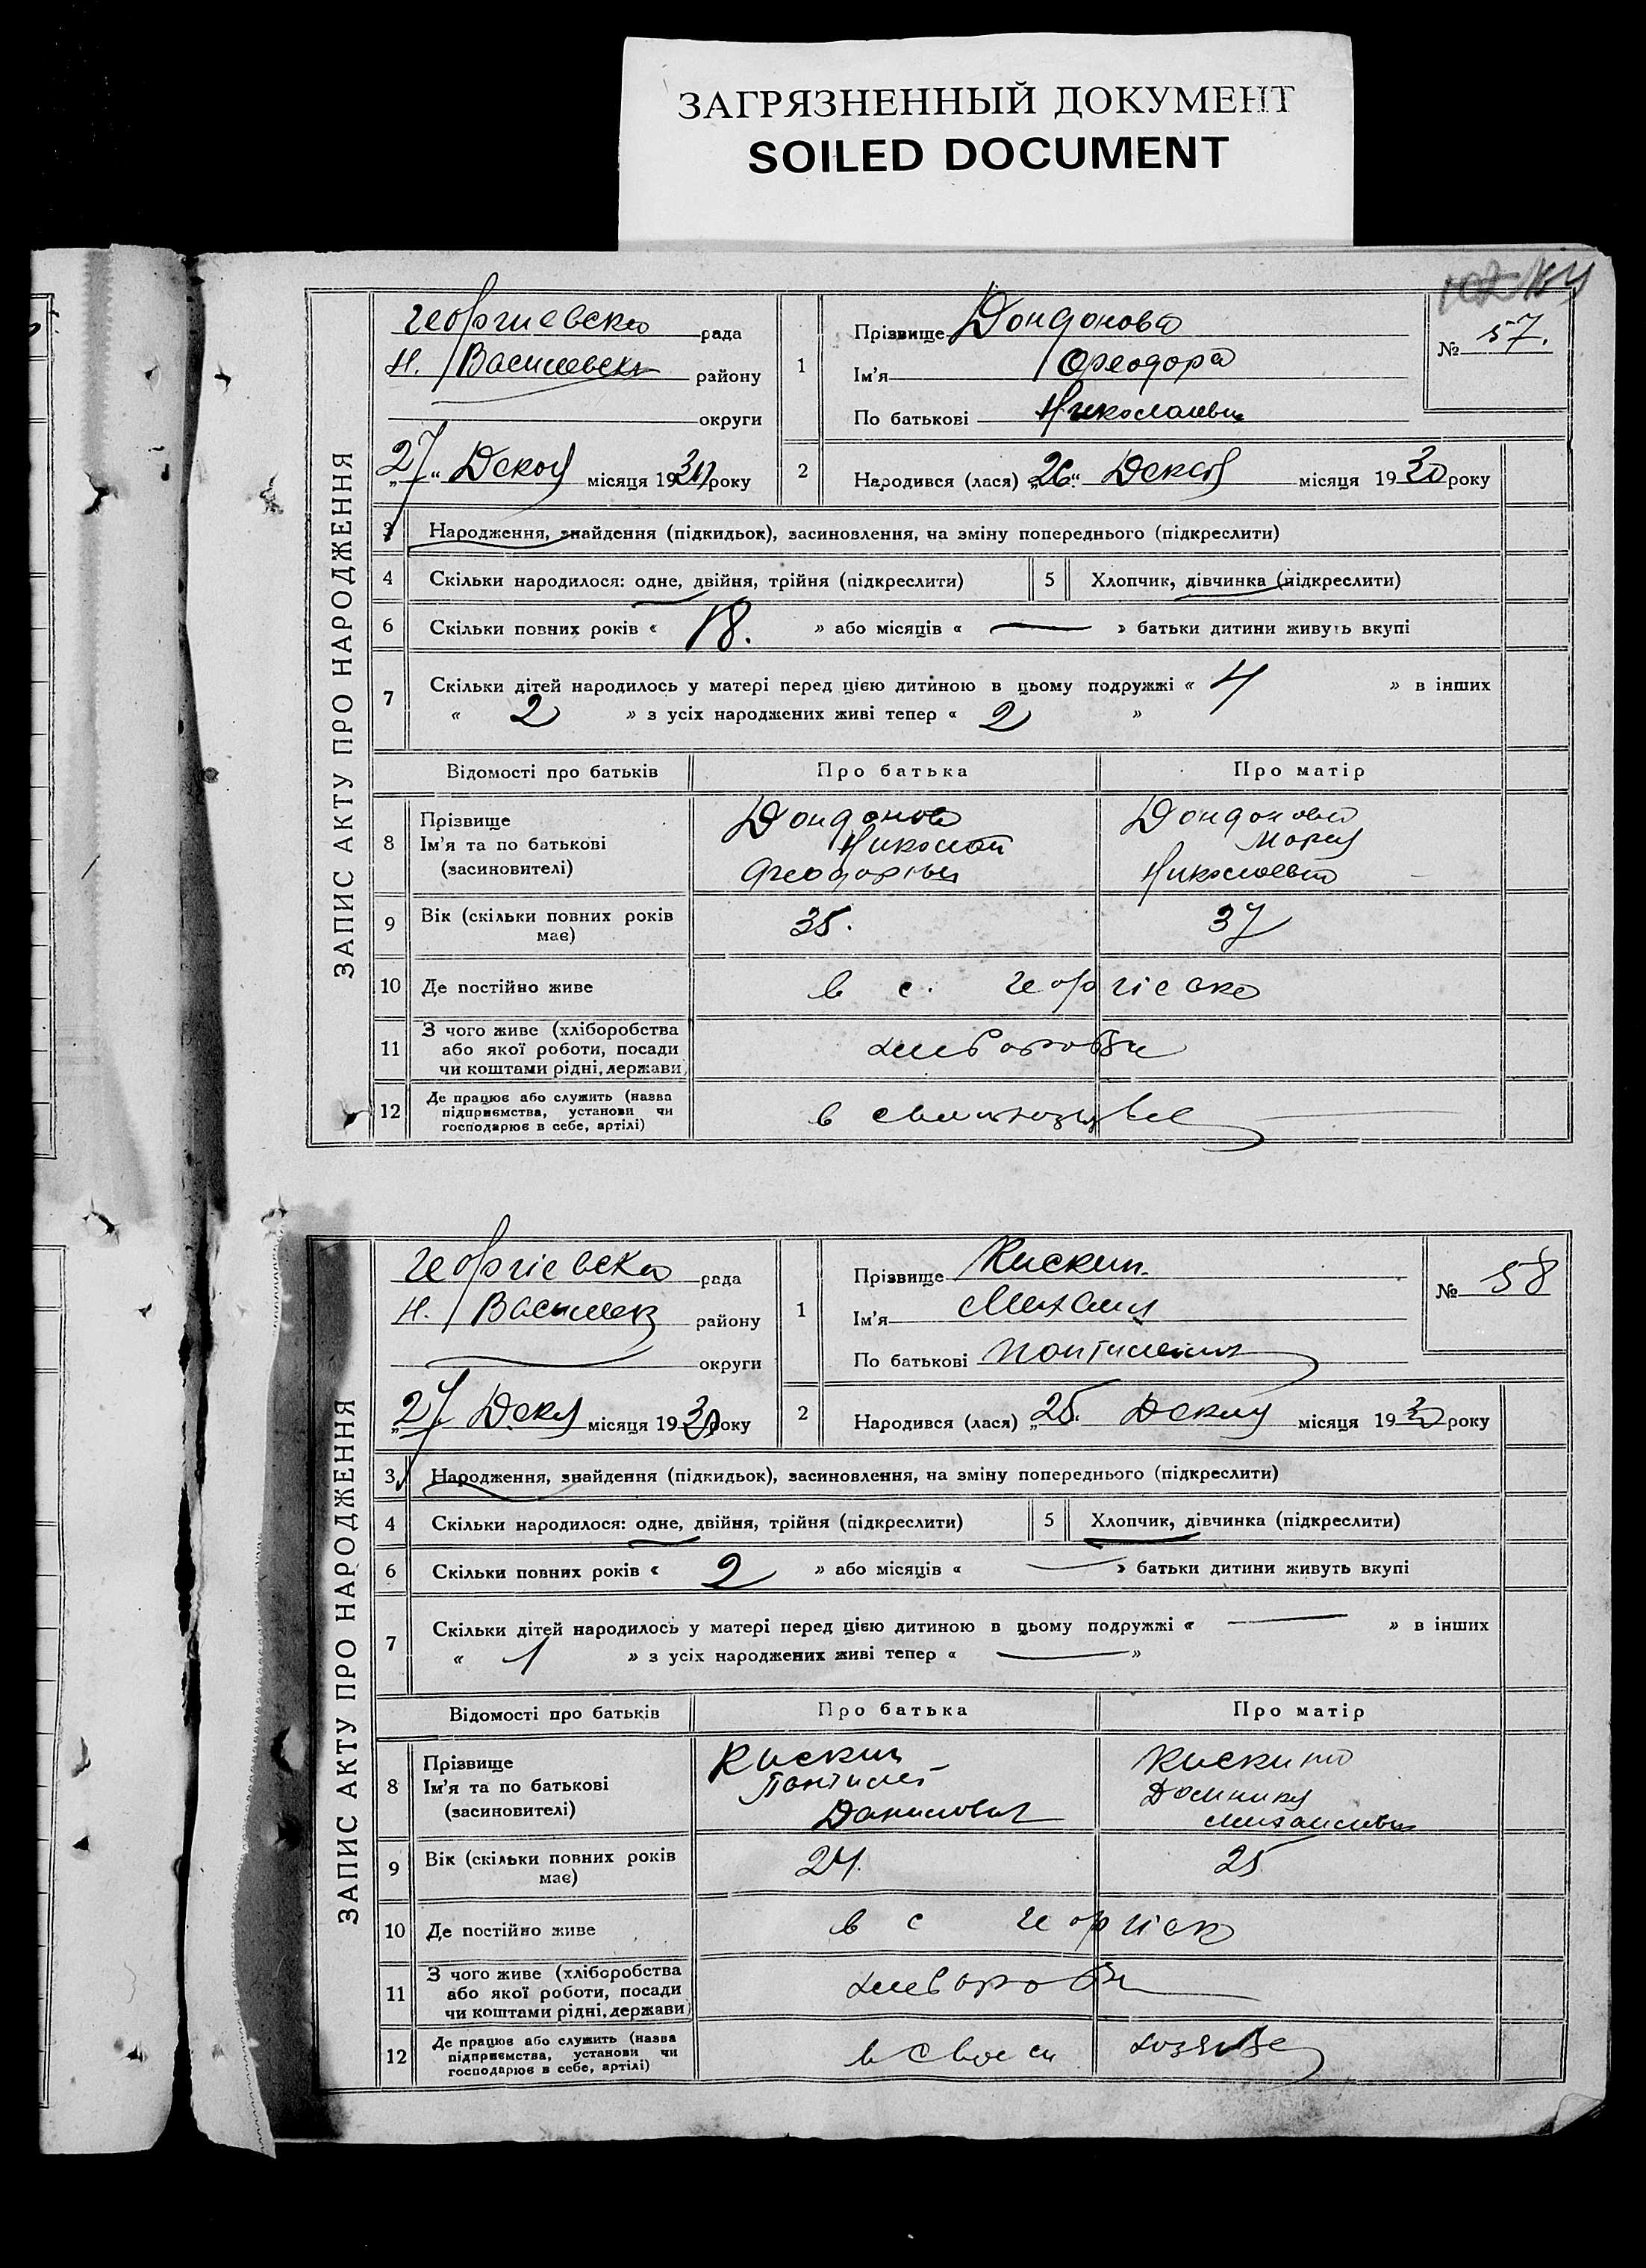 ЗАГРЯЗНЕННЫЙ ДОКУМЕНТ
SOILED DOCUMENT
ЗАПИС АКТУ ПРО НАРОДЖЕННЯ
Георгиевска рада
Н. Васильевск району
округи
„27“ Декоя місяця 1930 року
1
Прізвище Дондонова
Ім'я Феодора
По батькові Николаевн
№ 57.
2
Народився (лася) „26“ місяця 1930 року
3 Народження, знайдення (підкидьок), засиновлення, на зміну попереднього (підкреслити)
4 Скільки народилося: одне, двійня, трійня (підкреслити) 5 Хлопчик, дівчинка (підкреслити)
6 Скільки повних років « 18. » або місяців « — » батьки дитини живуть вкупі
7 Скільки дітей народилось у матері перед цією дитиною в цьому подружжі « 4 » в інших
« 2 » з усіх народжених живі тепер « 2 »
Відомості про батьків Про батька Про матір
8 Прізвище Дондонов Дондонова
Ім'я та по батькові Николай Мария
(засиновителі) Феодоровы Николаевна
9 Вік (скільки повних років має) 35. 37
10 Де постійно живе в с. Георгіевке
11 З чого живе (хліборобства
або якої роботи, посади
чи коштами рідні, держави)
12 Де працює або служить (назва
підприємства, установи чи
господарює в себе, артілі)
в
ЗАПИС АКТУ ПРО НАРОДЖЕННЯ
Георгіевска рада
Н. Василев району
округи
„27 місяця 1930 року
1
Прізвище Кискин
Ім'я Михаил
По батькові
№ 58
2
Народився (лася) „25“ місяця 1930 року
3 Народження, знайдення (підкидьок), засиновлення, на зміну попереднього (підкреслити)
4 Скільки народилося: одне, двійня, трійня (підкреслити) 5 Хлопчик, дівчинка (підкреслити)
6 Скільки повних років « 2 » або місяців « — » батьки дитини живуть вкупі
7 Скільки дітей народилось у матері перед цією дитиною в цьому подружжі « — » в інших
« 1 » з усіх народжених живі тепер « — »
Відомості про батьків Про батька Про матір
8 Прізвище Кискин Кискина
Ім'я та по батькові Пантилей Домникия
(засиновителі) Данилович Михаиловн
9 Вік (скільки повних років має) 24. 25
10 Де постійно живе в с
11 З чого живе (хліборобства
або якої роботи, посади
чи коштами рідні, держави)
12 Де працює або служить (назва
підприємства, установи чи
господарює в себе, артілі)
в своем хозяйве